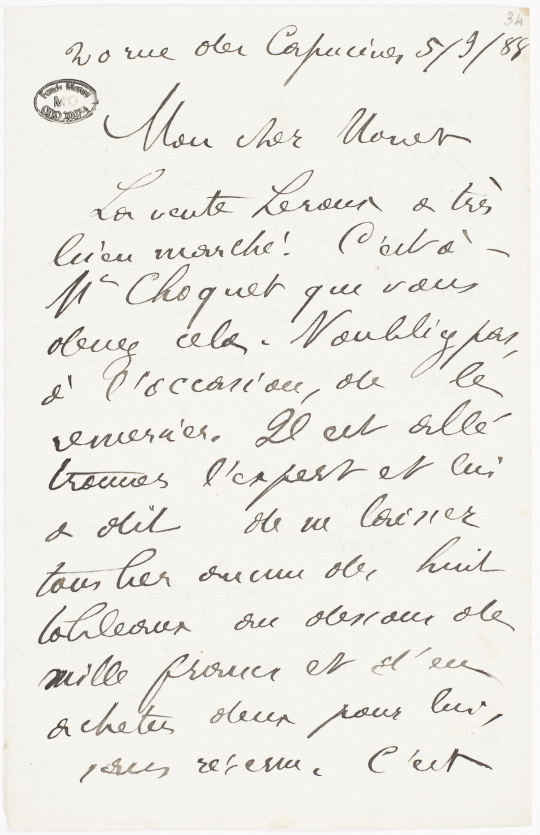 34
20 rue des Capucines 5/3/88
MO
Mon cher Monet
La vente Leroux a très
bien marché! C'est à -
Mr Choquet que vous
devez cela. N'oubliez pas,
à l'occasion, de le
remercier. Il est allé
trouver l'expert et lui
a dit de ne laisser
tomber aucun des huit
tableaux au dessous de
mille francs et d'en
acheter deux pour lui,
sans réserve. C'est